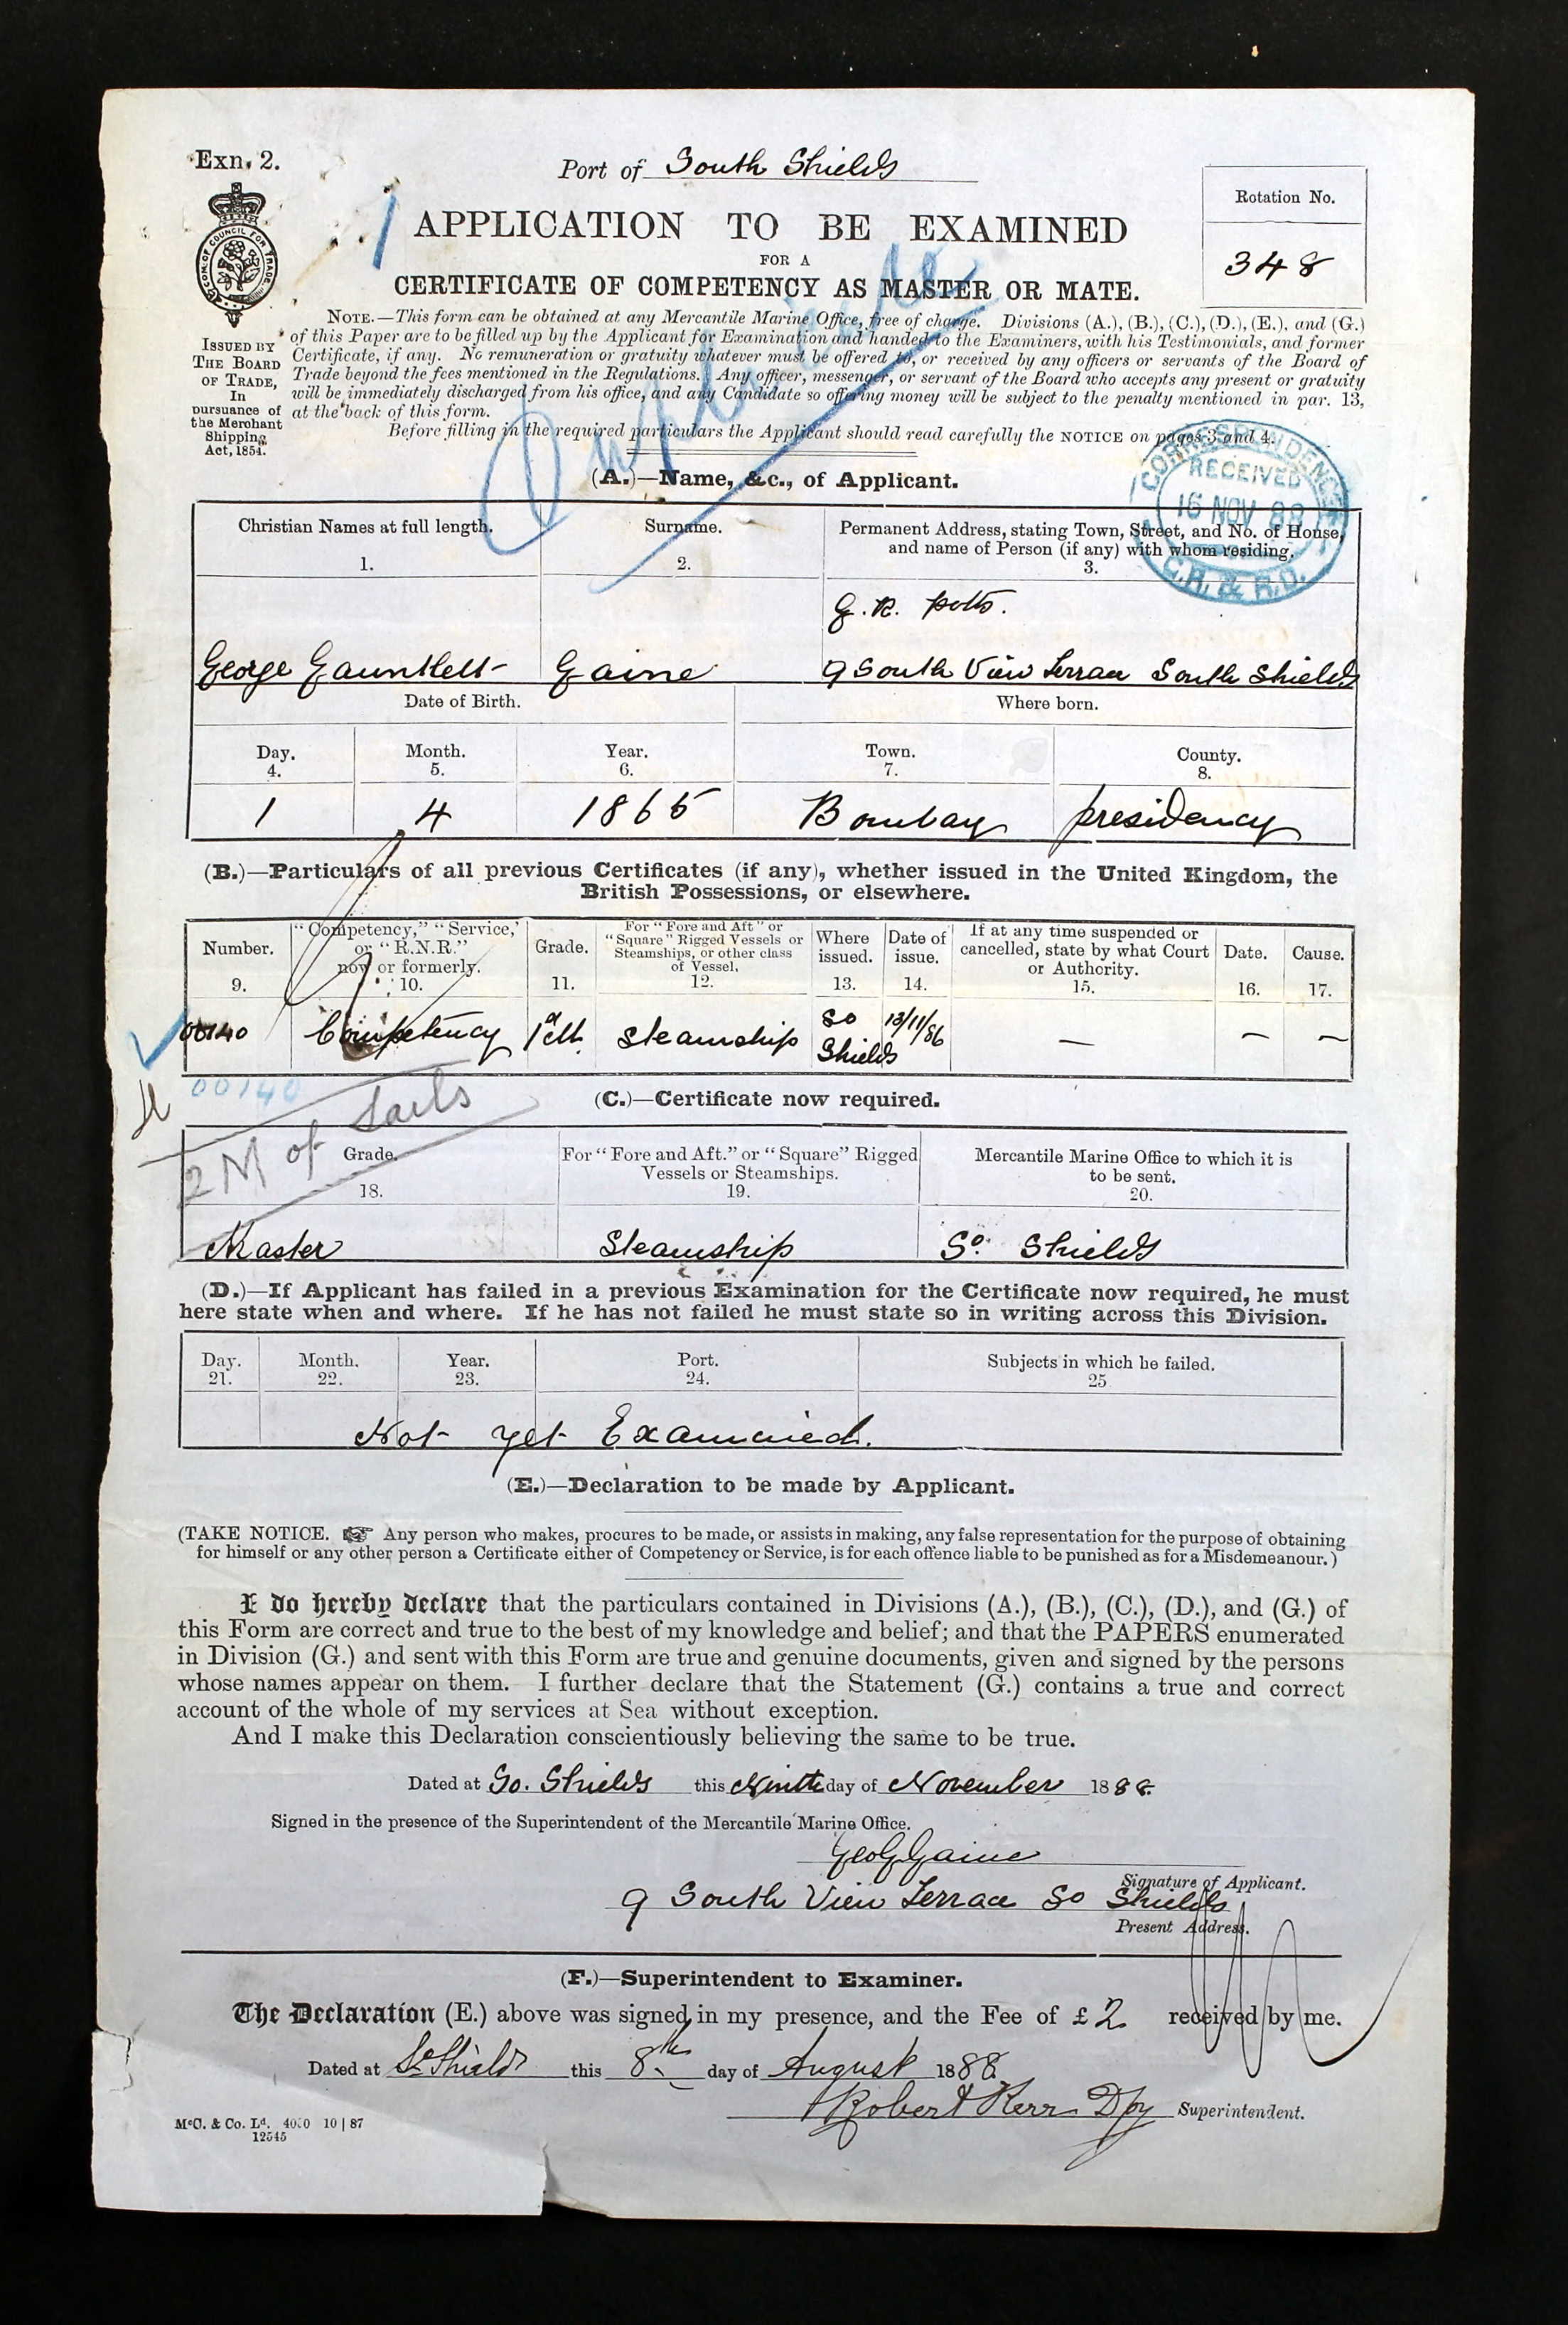 Exn. 2.
Port of South Shields
Rotation No.
348
APPLICATION TO BE EXAMINED
FOR A
CERTIFICATE OF COMPETENCY AS MASTER OR MATE.
COM: OF COUNCIL FOR TRADE
ISSUED BY
THE BOARD
OF TRADE,
In
pursuance of
the Merchant
Shipping
Act, 1854.
NOTE.—This form can be obtained at any Mercantile Marine Office, free of charge. Divisions (A.), (B.), (C.), (D.), (E.), and (G.)
of this Paper are to be filled up by the Applicant for Examination and handed to the Examiners, with his Testimonials, and former
Certificate, if any. No remuneration or gratuity whatever must be offered to, or received by any officers or servants of the Board of
Trade beyond the fees mentioned in the Regulations. Any officer, messenger, or servant of the Board who accepts any present or gratuity
will be immediately discharged from his office, and any Candidate so offering money will be subject to the penalty mentioned in par. 13,
at the back of this form.
Before filling in the required particulars the Applicant should read carefully the NOTICE on pages 3 and 4.
CORRESPONDENCE
RECEIVED
16 NOV 88
C.R. & R.O.
(A.)—Name, &c., of Applicant.
Christian Names at full length.
1.
Surname.
2.
Permanent Address, stating Town, Street, and No. of House,
and name of Person (if any) with whom residing.
3.
G. R. Potts.
George Gauntlett Gaine 9 South View Terrace South Shields
Date of Birth. Where born.
Day. Month. Year. Town. County.
4. 5. 6. 7. 8.
1 4 1865 Bombay presidency
(B.)—Particulars of all previous Certificates (if any), whether issued in the United Kingdom, the
British Possessions, or elsewhere.
Number.
9.
"Competency," "Service,"
or "R.N.R."
now or formerly.
10.
Grade.
11.
For "Fore and Aft" or
"Square" Rigged Vessels or
Steamships, or other class
of Vessel.
12.
Where
issued.
13.
Date of
issue.
14.
If at any time suspended or
cancelled, state by what Court
or Authority.
15.
Date.
16.
Cause.
17.
00140 Competency 1st Steamship So Shields 13/11/86 — — —
00140
2 M of Sails
(C.)—Certificate now required.
Grade.
18.
For "Fore and Aft." or "Square" Rigged
Vessels or Steamships.
19.
Mercantile Marine Office to which it is
to be sent.
20.
Master Steamship So. Shields
(D.)—If Applicant has failed in a previous Examination for the Certificate now required, he must
here state when and where. If he has not failed he must state so in writing across this Division.
Day. Month. Year. Port. Subjects in which he failed.
21. 22. 23. 24. 25
Not yet Examined.
(E.)—Declaration to be made by Applicant.
(TAKE NOTICE. Any person who makes, procures to be made, or assists in making, any false representation for the purpose of obtaining
for himself or any other person a Certificate either of Competency or Service, is for each offence liable to be punished as for a Misdemeanour.)
I do hereby declare that the particulars contained in Divisions (A.), (B.), (C.), (D.), and (G.) of
this Form are correct and true to the best of my knowledge and belief; and that the PAPERS enumerated
in Division (G.) and sent with this Form are true and genuine documents, given and signed by the persons
whose names appear on them. I further declare that the Statement (G.) contains a true and correct
account of the whole of my services at Sea without exception.
And I make this Declaration conscientiously believing the same to be true.
Dated at So. Shields this Ninth day of November 1888.
Signed in the presence of the Superintendent of the Mercantile Marine Office.
Geo G Gaine
Signature of Applicant.
9 South View Terrace So Shields
Present Address.
(F.)—Superintendent to Examiner.
The Declaration (E.) above was signed in my presence, and the Fee of £ 2 received by me.
Dated at So Shields this 8th day of August 1888.
Robert Kerr Dpy Superintendent.
McC. & Co. Ld. 4000 10 | 87
12545